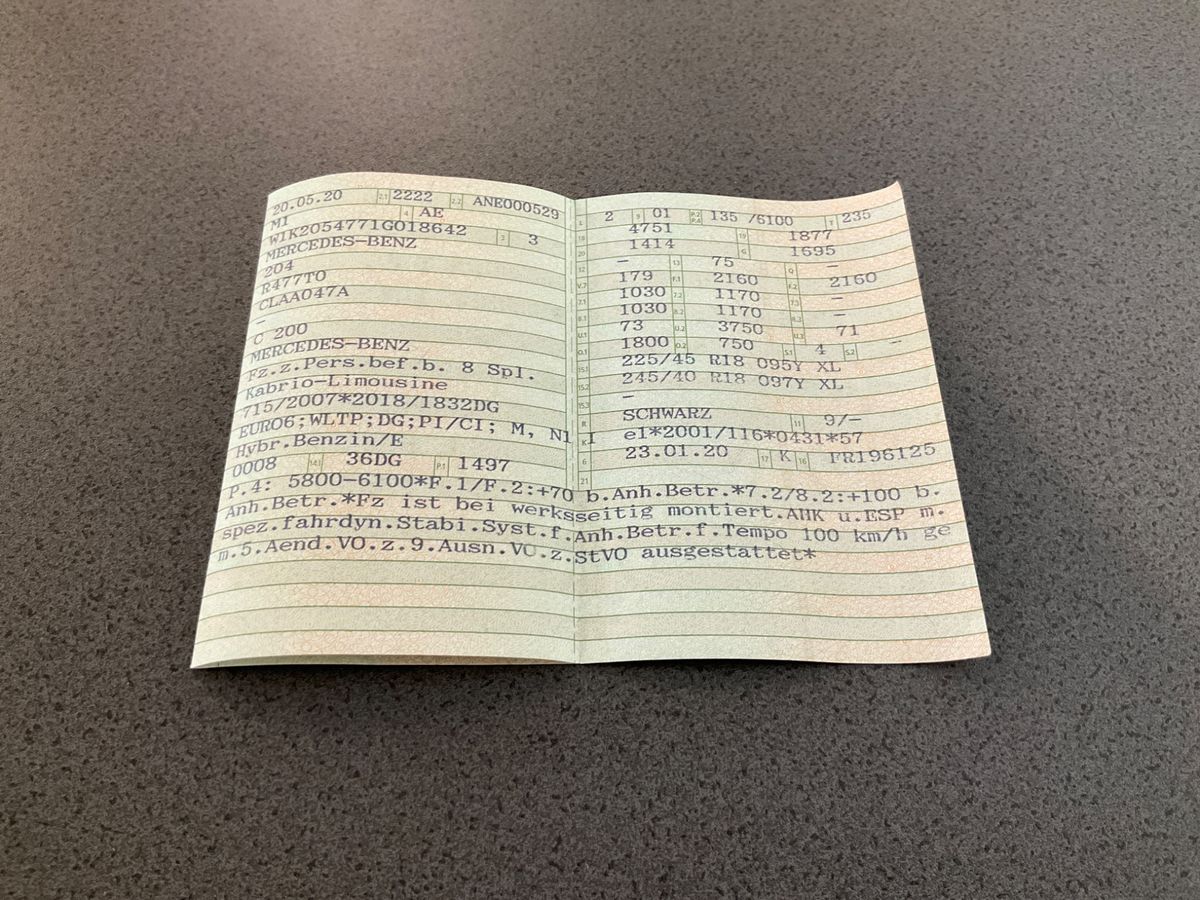 20.05.20 2.1 2222 2.2 ANE000529
M1 4 AE
W1K2054771G018642 3 3
MERCEDES-BENZ
204
R477T0
CLAA047A
–
C 200
MERCEDES-BENZ
Fz.z.Pers.bef.b. 8 Spl.
Kabrio-Limousine
715/2007*2018/1832DG
EURO6;WLTP;DG;PI/CI; M, N1 I
Hybr.Benzin/E
0008 14.1 36DG P.1 1497
L 2 9 01 P.2 P.4 135 /6100 T 235
18 4751 19 1877
20 1414 G 1695
12 – 13 75 Q –
V.7 179 F.1 2160 F.2 2160
7.1 1030 7.2 1170 7.3 –
8.1 1030 8.2 1170 8.3 –
U.1 73 U.2 3750 U.3 71
O.1 1800 O.2 750 S.1 4 S.2 –
15.1 225/45 R18 095Y XL
15.2 245/40 R18 097Y XL
15.3 –
R SCHWARZ 11 9/–
K e1*2001/116*0431*57
6 23.01.20 17 K 16 FR196125
21
P.4: 5800-6100*F.1/F.2:+70 b.Anh.Betr.*7.2/8.2:+100 b.
Anh.Betr.*Fz ist bei werksseitig montiert.AHK u.ESP m.
spez.fahrdyn.Stabi.Syst.f.Anh.Betr.f.Tempo 100 km/h ge
m.5.Aend.VO.z.9.Ausn.VO.z.StVO ausgestattet*